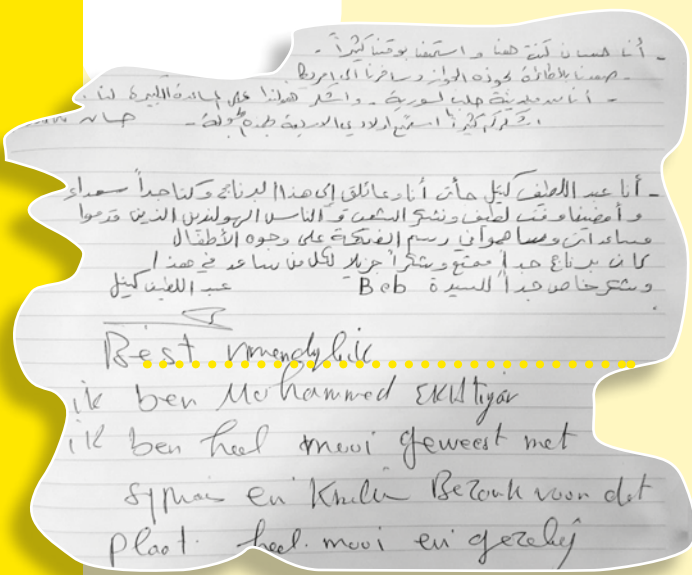 - أنا حسان كنت هنا و استمتعنا بوقتنا كثيراً -
- صعدنا بالطائرة
- أنا من مدينة حلب السورية - واشكر هولندا على المساعدة الكبيرة لنا
اشكركم كثيراً استمتع اولادي الاربعة
- أنا عبد اللطيف كيل جأت أنا وعائلتي إلى هذا البرنامج وكنا جداً سعداء
و أمضينا وقت لطيف ونشكر الشعب و الناس الهولنديين الذين قدموا
مساعدات وساهموا في رسم الضحكة على وجوه الأطفال
كان برنامج جداً ممتع وشكراً جزيلا لكل من ساعد في هذا
وشكر خاص جداً للسيدة Beb عبد اللطيف كيل
Best
ik ben Mohammed
ik ben heel mooi geweest met
en Bezouk voor dat
plaat. heel mooi en